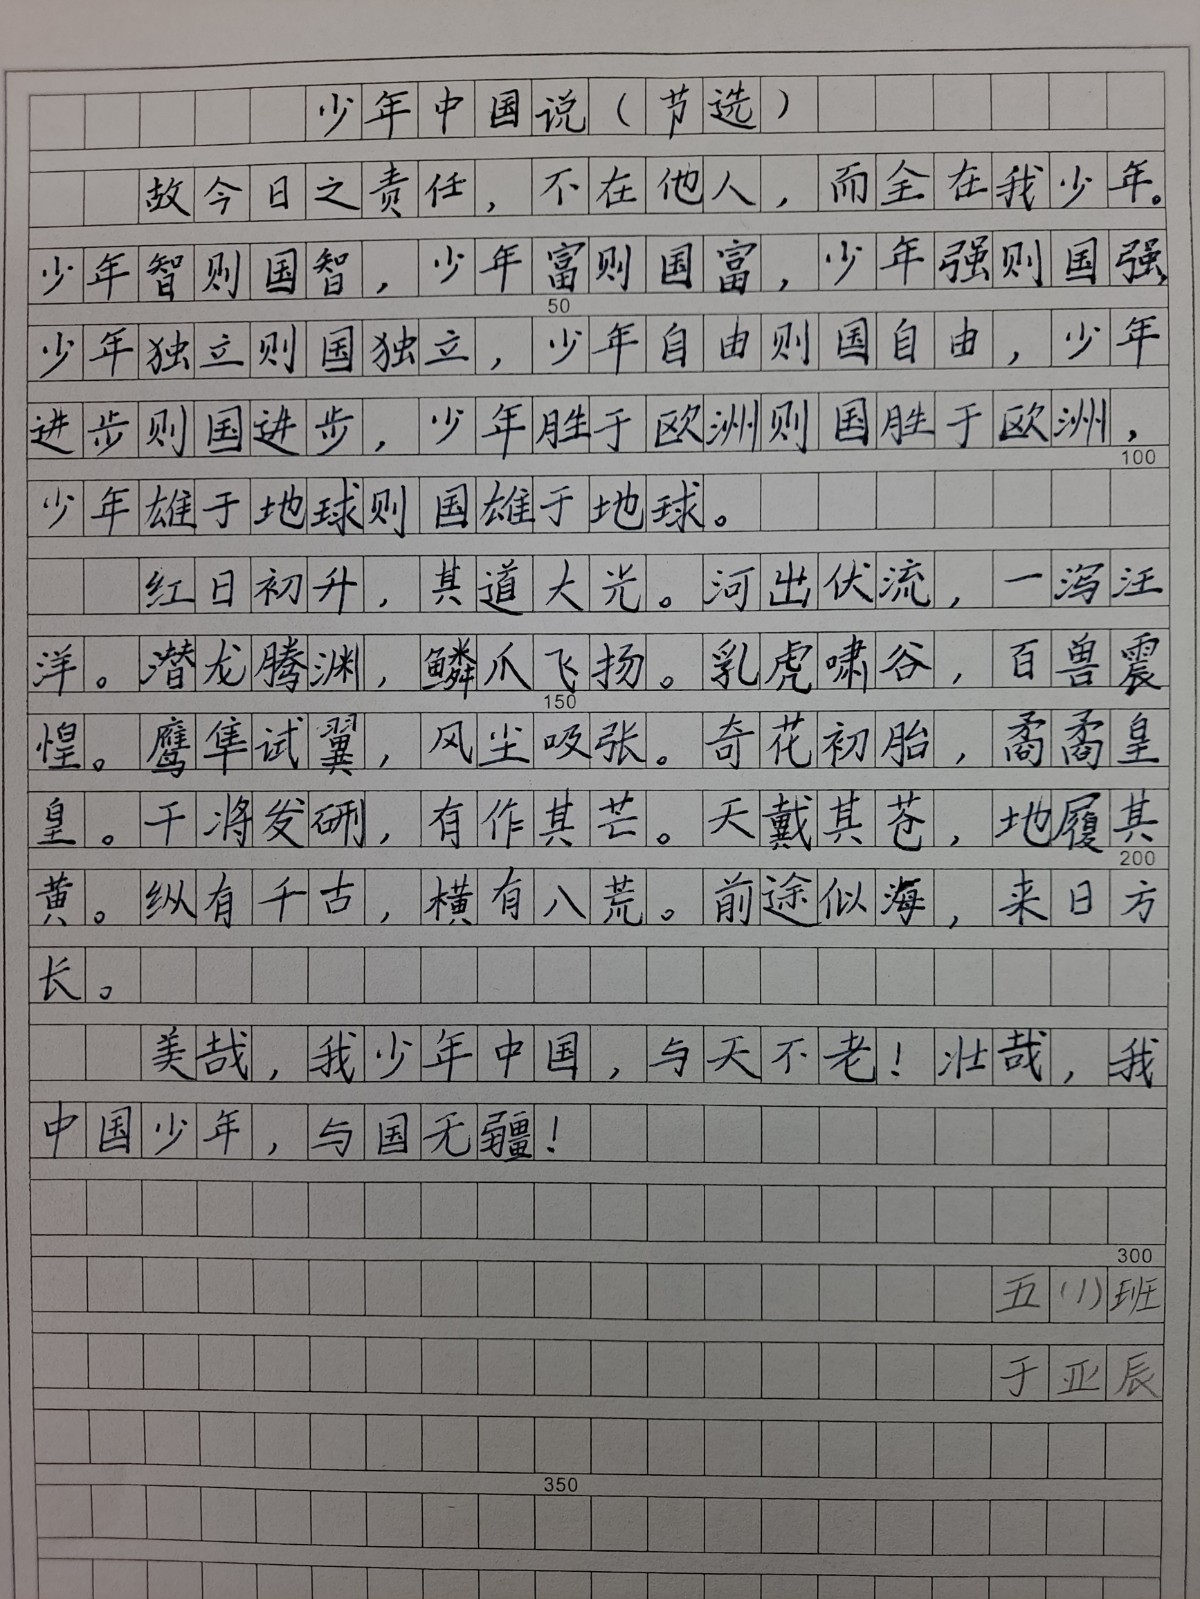 少年中国说（节选）
故今日之责任，不在他人，而全在我少年。
少年智则国智，少年富则国富，少年强则国强，
50
少年独立则国独立，少年自由则国自由，少年
进步则国进步，少年胜于欧洲则国胜于欧洲，
100
少年雄于地球则国雄于地球。
红日初升，其道大光。河出伏流，一泻汪
洋。潜龙腾渊，鳞爪飞扬。乳虎啸谷，百兽震
150
惶。鹰隼试翼，风尘吸张。奇花初胎，矞矞皇
皇。干将发硎，有作其芒。天戴其苍，地履其
200
黄。纵有千古，横有八荒。前途似海，来日方
长。
美哉，我少年中国，与天不老！壮哉，我
中国少年，与国无疆！
300
五（1）班
于亚辰
350